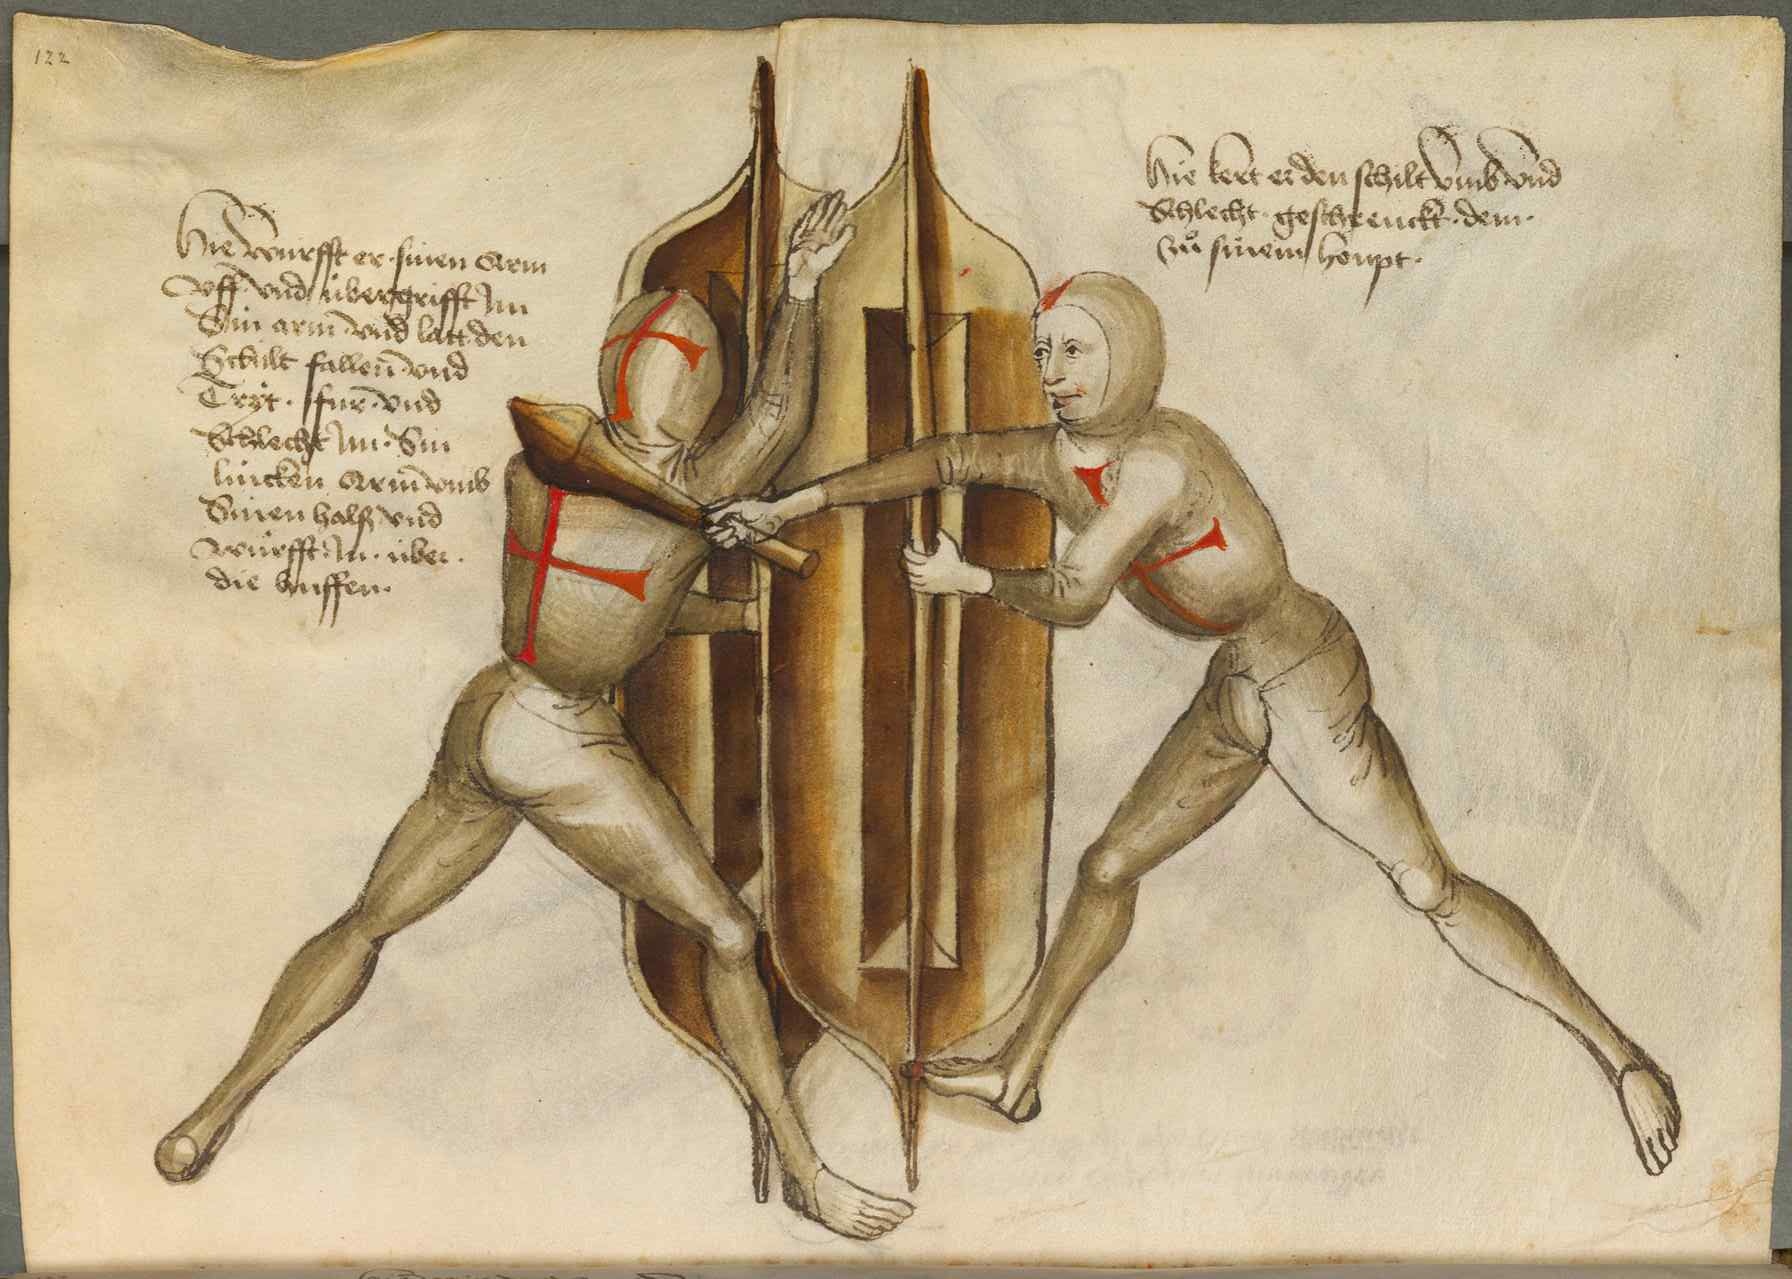 122
Hie wurfft er sinen Arm
uff und übergrifft Im
Sin arm und latt den
Schilt fallen und
Tryt für und
Schlecht Im Sin
lincken Arm umb
Sinen halß und
würfft In über
die huffen
Hie kert er den schilt umb und
Schlecht geschrenckt dem
zů sinem houpt